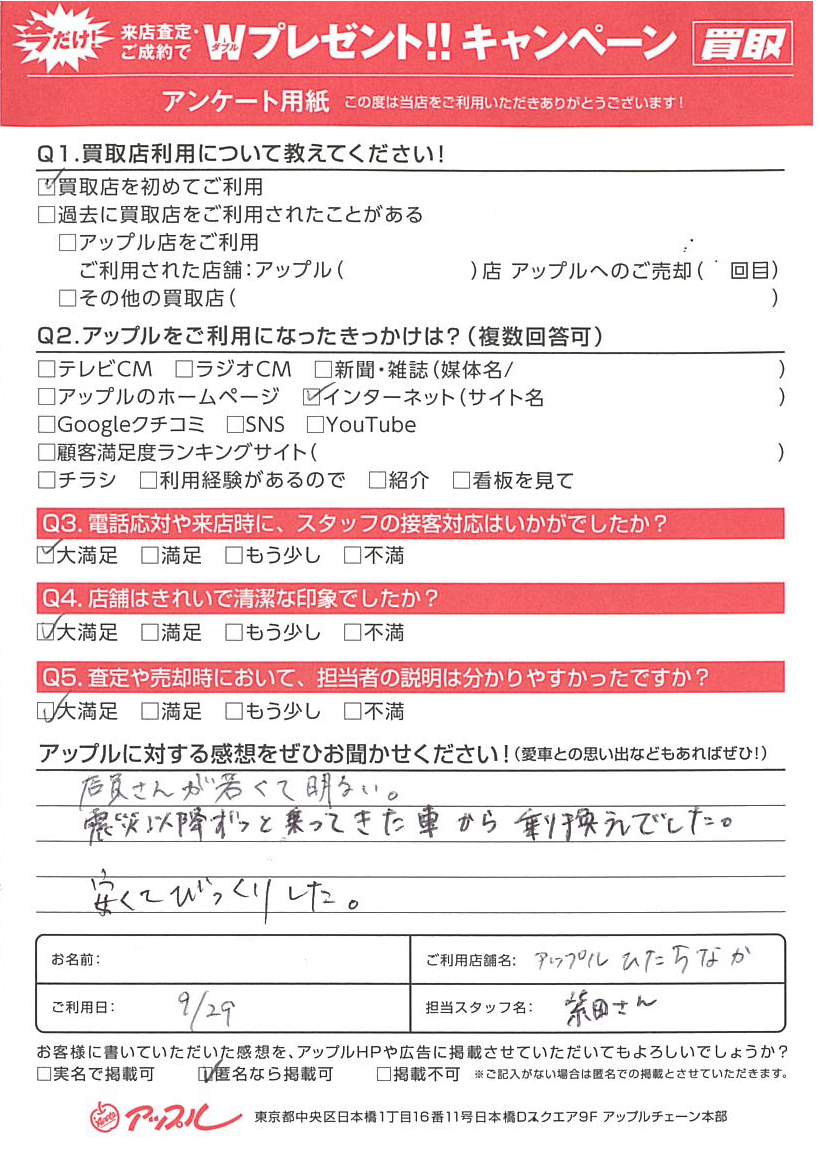 今だけ! 来店査定・ご成約で Wダブルプレゼント!! キャンペーン 買取
アンケート用紙 この度は当店をご利用いただきありがとうございます!
Q1.買取店利用について教えてください!
☑買取店を初めてご利用
□過去に買取店をご利用されたことがある
□アップル店をご利用
ご利用された店舗:アップル( )店 アップルへのご売却( 回目)
□その他の買取店( )
Q2.アップルをご利用になったきっかけは?(複数回答可)
□テレビCM □ラジオCM □新聞・雑誌(媒体名/ )
□アップルのホームページ ☑インターネット(サイト名 )
□Googleクチコミ □SNS □YouTube
□顧客満足度ランキングサイト( )
□チラシ □利用経験があるので □紹介 □看板を見て
Q3. 電話応対や来店時に、スタッフの接客対応はいかがでしたか?
☑大満足 □満足 □もう少し □不満
Q4. 店舗はきれいで清潔な印象でしたか?
☑大満足 □満足 □もう少し □不満
Q5. 査定や売却時において、担当者の説明は分かりやすかったですか?
☑大満足 □満足 □もう少し □不満
アップルに対する感想をぜひお聞かせください!(愛車との思い出などもあればぜひ!)
店員さんが若くて明るい。
震災以降ずっと乗ってきた車から乗り換えでした。
安くてびっくりした。
お名前: ご利用店舗名: アップルひたちなか
ご利用日: 9/29 担当スタッフ名: 柴田さん
お客様に書いていただいた感想を、アップルHPや広告に掲載させていただいてもよろしいでしょうか?
□実名で掲載可 ☑匿名なら掲載可 □掲載不可 ※ご記入がない場合は匿名での掲載とさせていただきます。
アップル 東京都中央区日本橋1丁目16番11号日本橋Dスクエア9F アップルチェーン本部